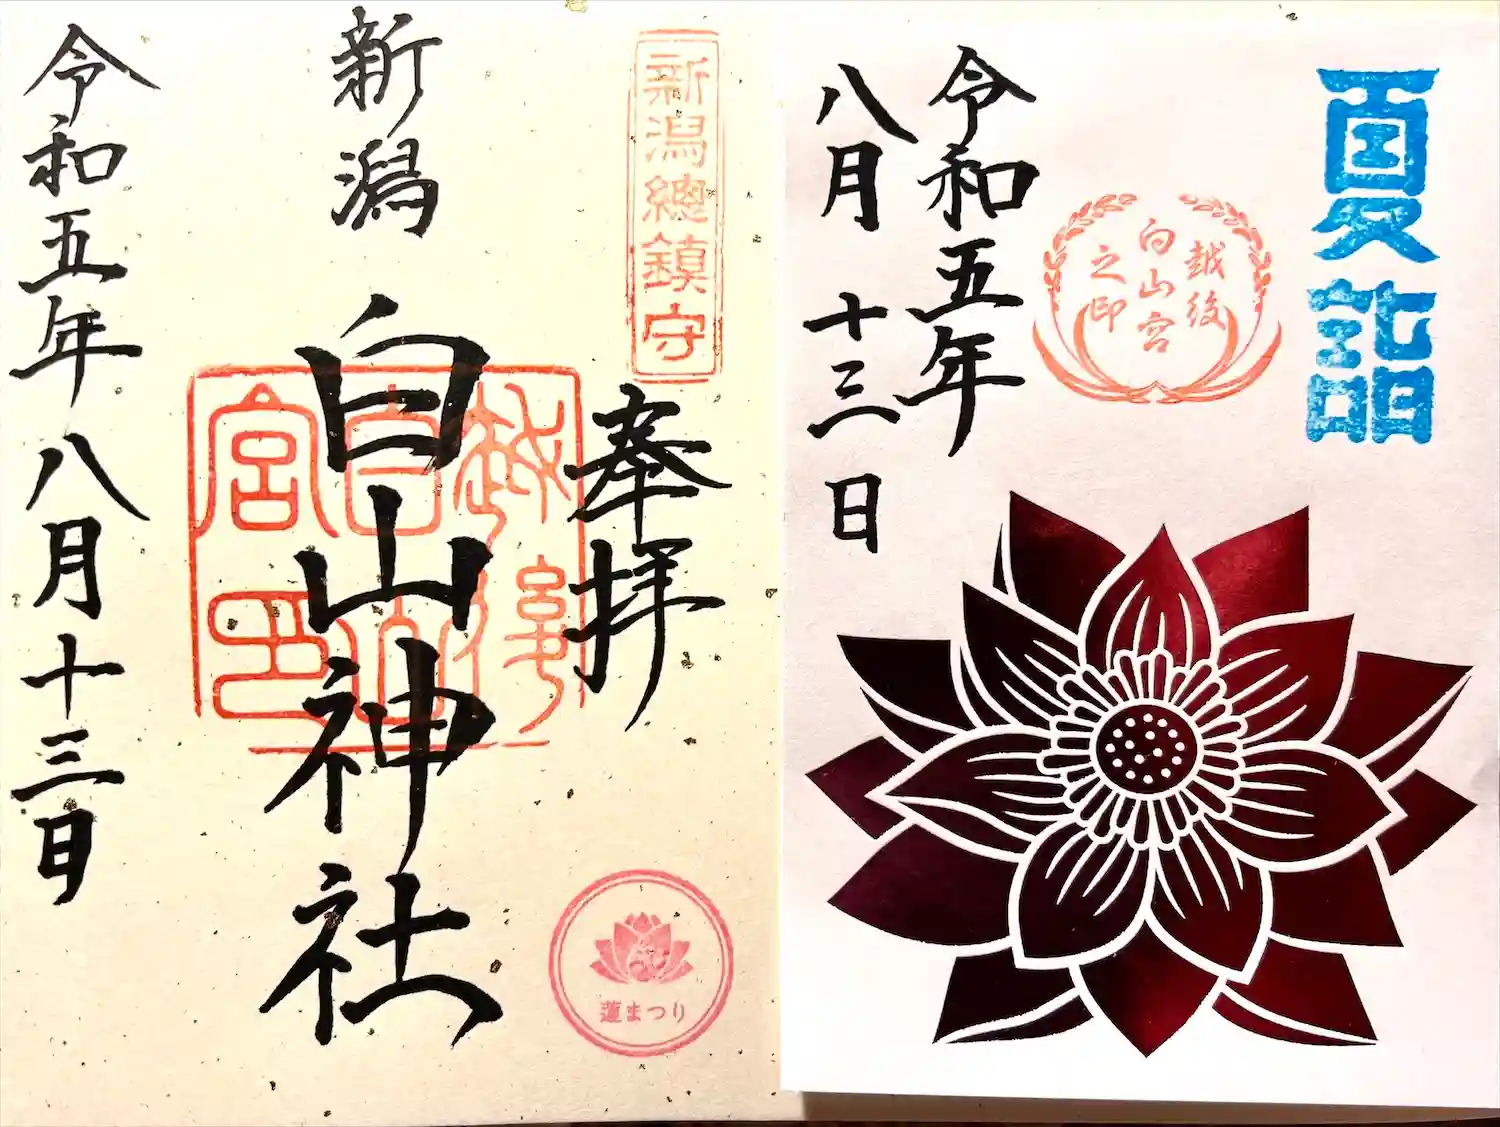 夏詣
越後
白山宮
之印
令和五年
八月十三日
新潟總鎮守
奉拝
越後
白山
宮印
新潟 白山神社
蓮まつり
令和五年 八月十三日